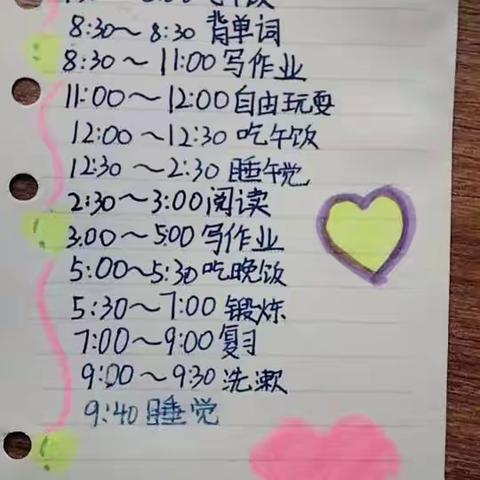 8:30～8:30 背单词
8:30～11:00写作业
11:00～12:00自由玩耍
12:00～12:30 吃午饭
12:30～2:30 睡午觉
2:30～3:00阅读
3:00～5:00 写作业
5:00～5:30吃晚饭
5:30～7:00 锻炼
7:00～9:00 复习
9:00～9:30 洗漱
9:40 睡觉